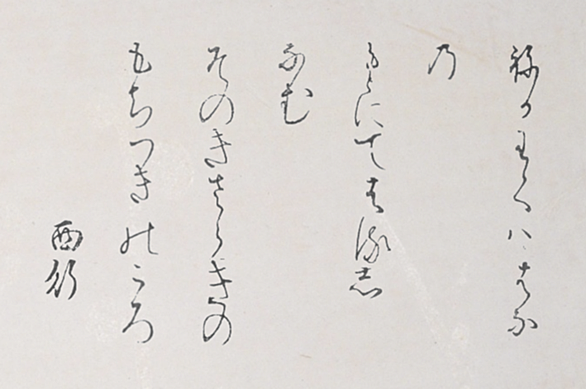 ねかわくハはな
乃
もとにてはる志
なむ
そのきさらきの
もちつきのころ
西行